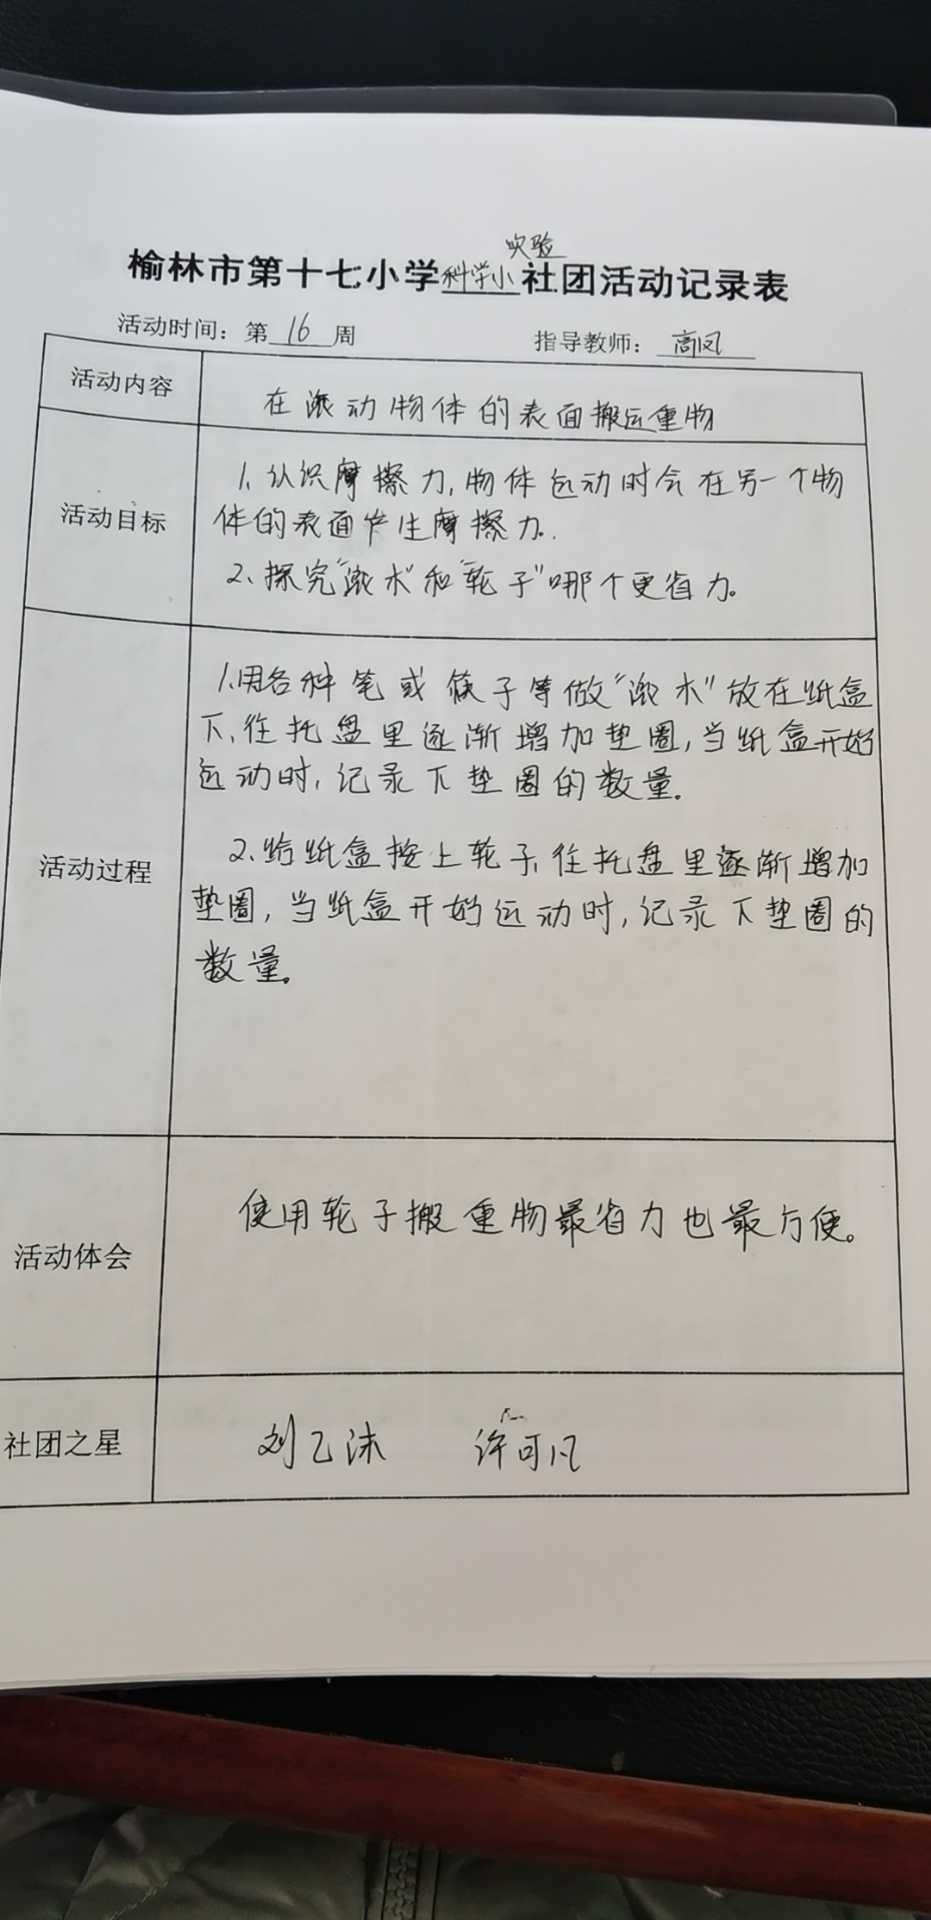 榆林市第十七小学科学小实验社团活动记录表
活动时间：第 16 周 指导教师：高凤
活动内容 在滚动物体的表面搬运重物
活动目标
1、认识摩擦力,物体运动时会在另一个物
体的表面产生摩擦力.
2、探究"滚木"和"轮子"哪个更省力。
活动过程
1.用各种笔或筷子等做"滚木"放在纸盒
下,往托盘里逐渐增加垫圈,当纸盒开始
运动时,记录下垫圈的数量.
2、给纸盒按上轮子,往托盘里逐渐增加
垫圈,当纸盒开始运动时,记录下垫圈的
数量。
活动体会
使用轮子搬重物最省力也最方便。
社团之星 刘乙沐 许可凡